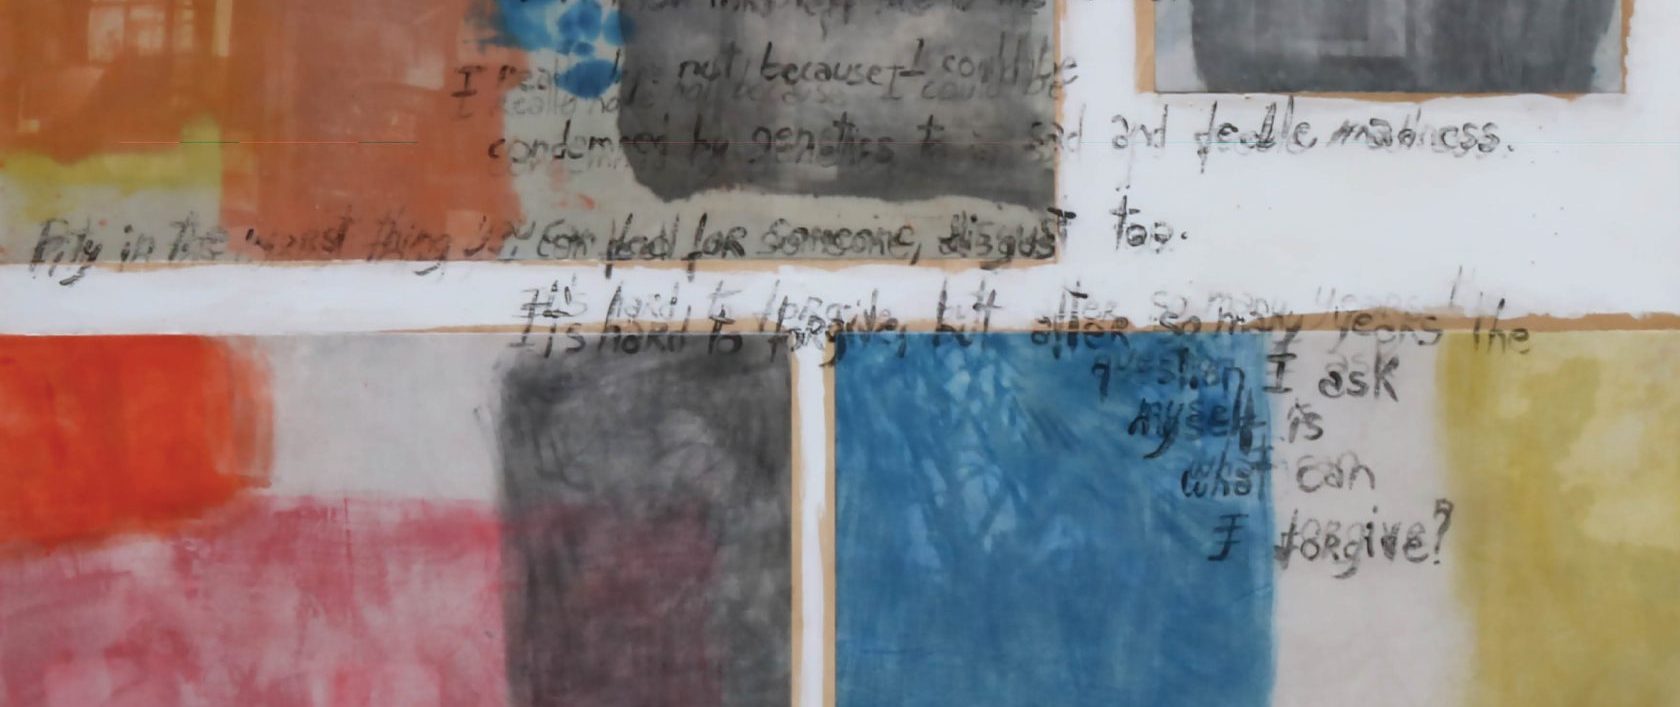 I really hope not, because I could be
condemned by genetics to a sad and feeble madness.
Pity is the worst thing you can feel for someone, disgust too.
It's hard to forgive, but after so many years the
question I ask
myself is
what can
I forgive?